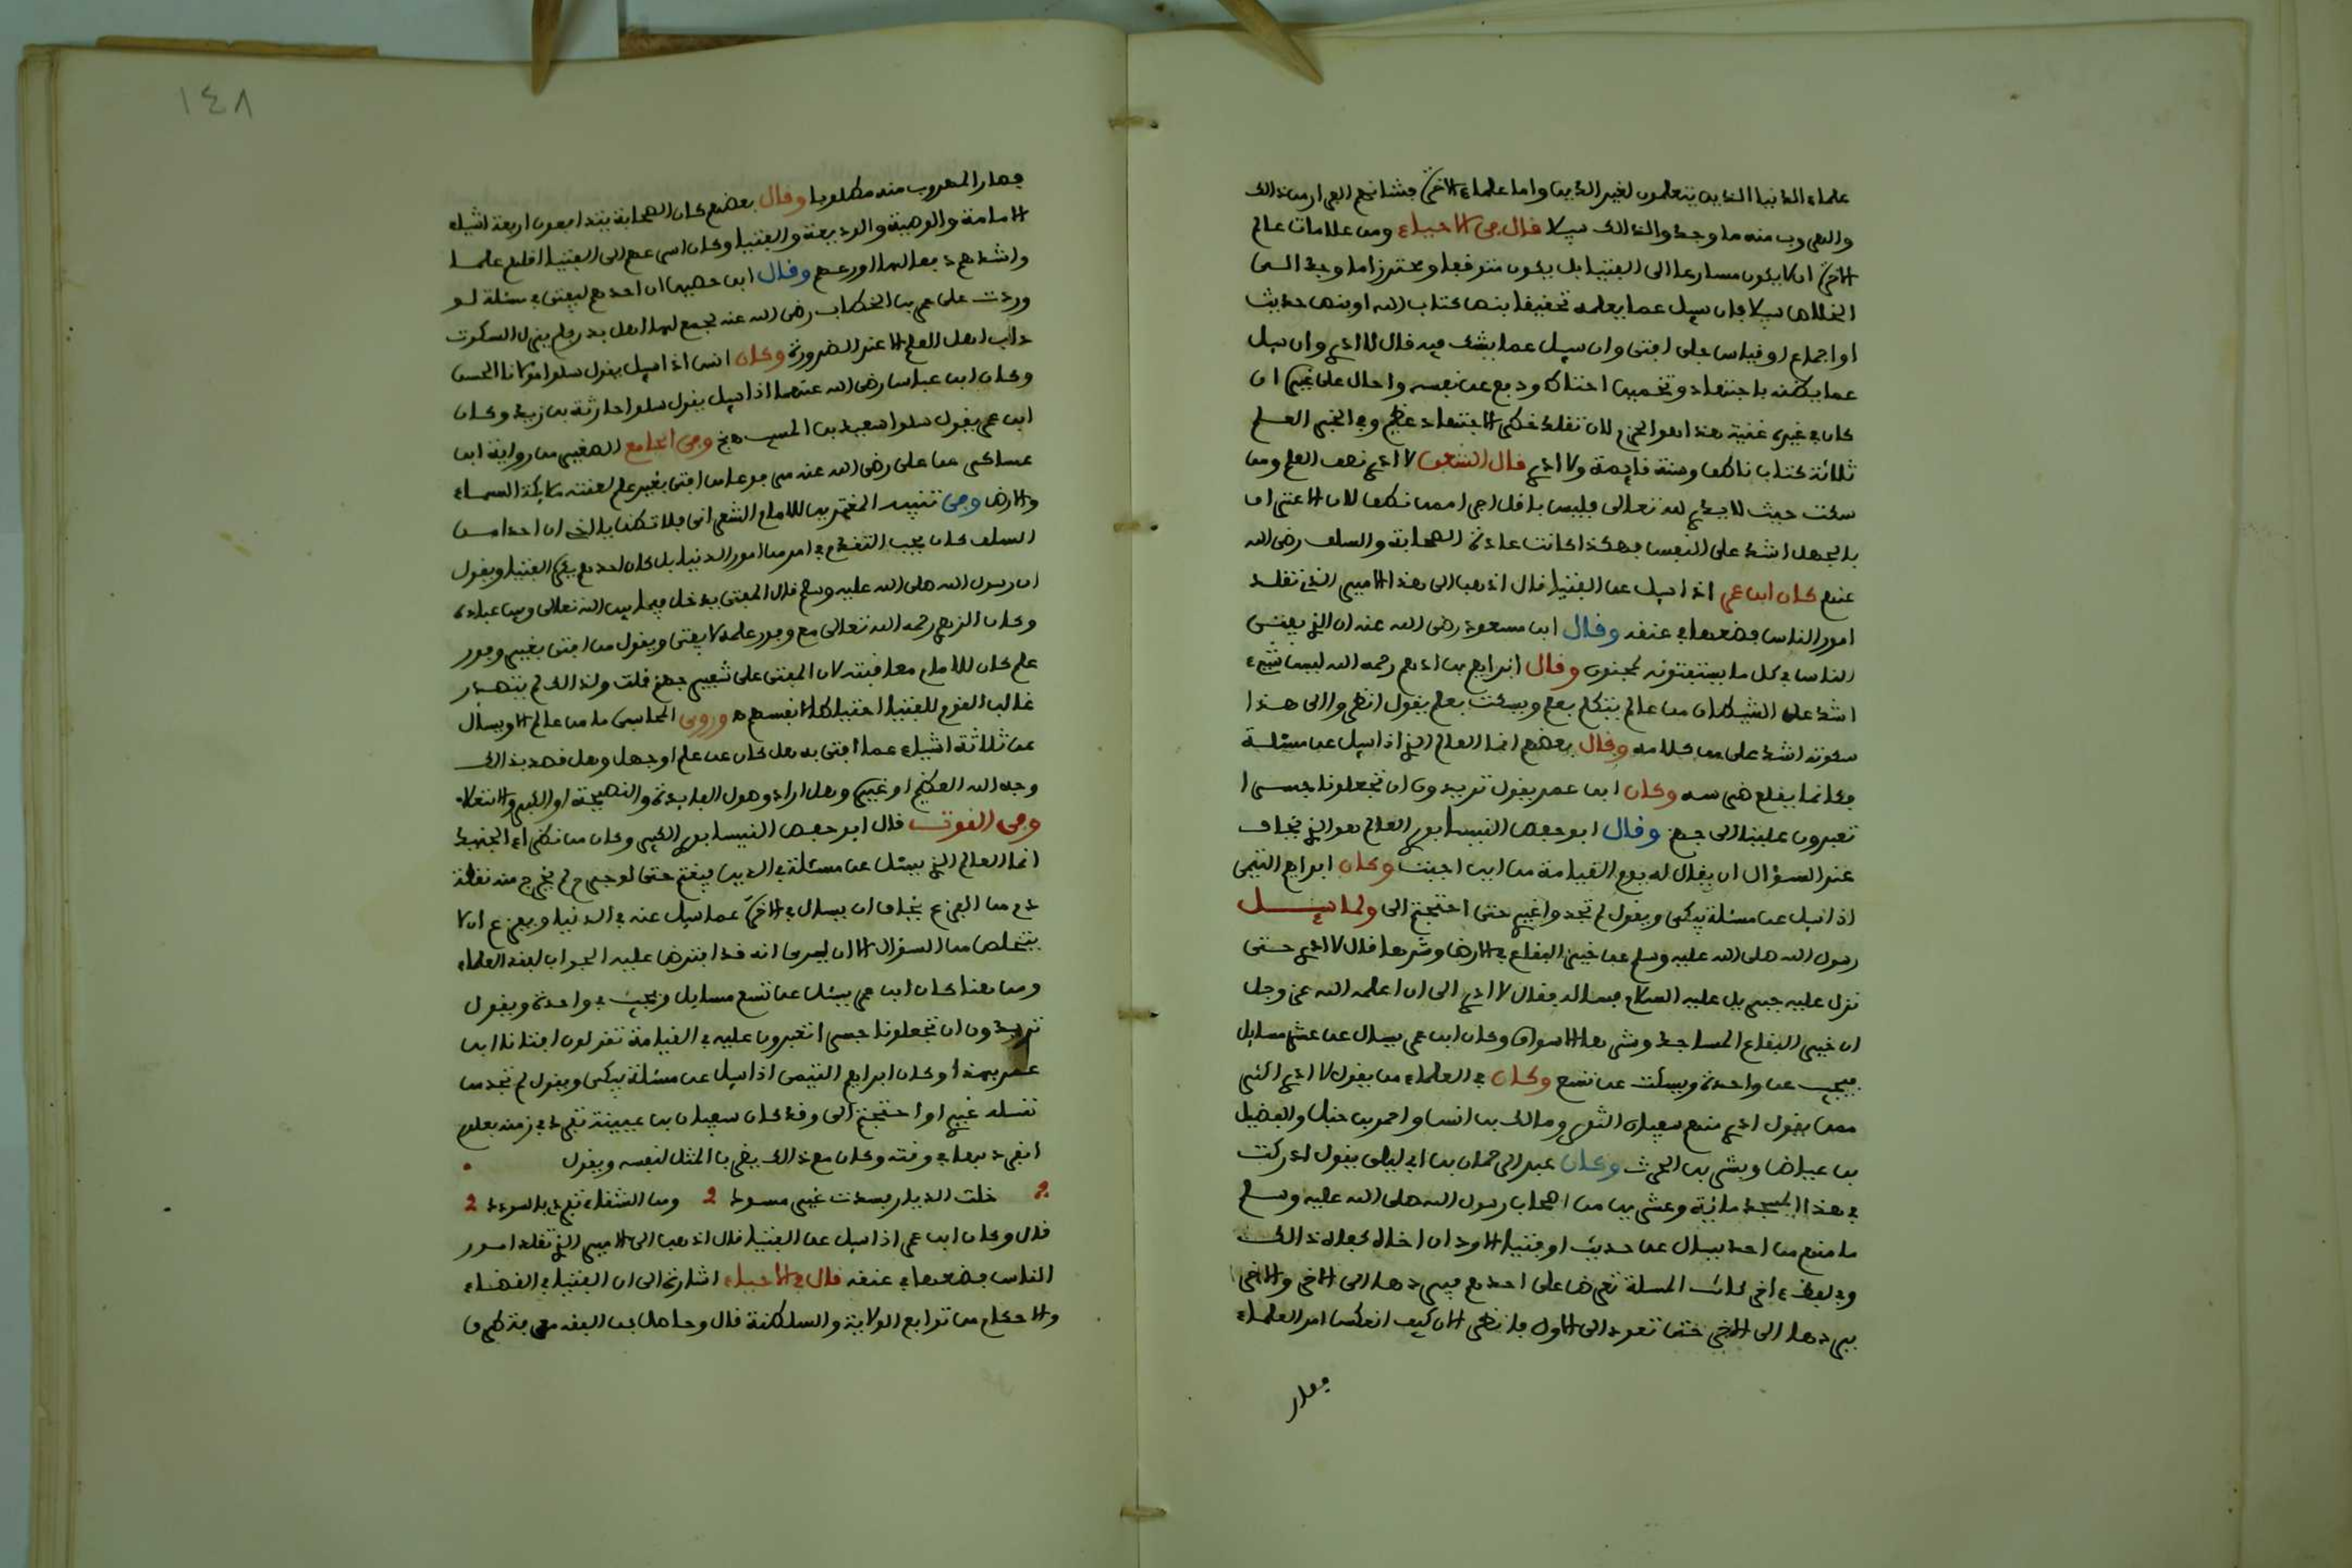 علماء الدنيا الذين يتعلمون لغير الدين واما علماء الاخرة فشانهم الفرار من ذالك
والهروب منه ما وجدوا لذالك سبيلا قال في الاحياء ومن علامات عالم
الاخرة ان لا يكون مسارعا الى الفتيا بل يكون متوقفا ومحترزا ما وجد الى
الخلاص سبيلا فان سيل عما يعلمه تحقيقا بنص كتاب الله او بنص حديث
او اجماع او قياس جلي افتى وان سيل عما يشك فيه قال لا ادري وان سيل
عما يظنه باجتهاد وتخمين احتاط ودفع عن نفسه واحال على غيره ان
كان في غيره غنية هذا هو الحزم لان تقلد خطر الاجتهاد عظيم وفي الخبر العلم
ثلاثة كتاب ناطق وسنة قايمة ولا ادري قال الشعبي لا ادري نصف العلم ومن
سكت حيث لا يدري لله تعالى فليس باقل اجرا ممن نطق لان الاعتراف
بالجهل اشد على النفس فهكذا كانت عادة الصحابة والسلف رضي الله
عنهم كان ابن عمر اذا سيل عن الفتيا قال اذهب الى هذا الامير الذي تقلد
امور الناس فضعها في عنقه وقال ابن مسعود رضي الله عنه ان الذي يفتي
الناس في كل ما يستفتونه لمجنون وقال ابراهيم بن ادهم رحمه الله ليس شيء
اشد على الشيطان من عالم يتكلم بعلم ويسكت بعلم يقول انظروا الى هذا
سكوته اشد علي من كلامه وقال بعضهم انما العالم الذي اذا سيل عن مسئلة
فكانما يقلع ضرسه وكان ابن عمر يقول تريدون ان تجعلونا جسرا
تعبرون علينا الى جهنم وقال ابو حفص النيسابوري العالم هو الذي يخاف
عند السؤال ان يقال له يوم القيامة من اين اجبت وكان ابراهيم التيمي
اذا سيل عن مسئلة يبكي ويقول لم تجدوا غيري حتى احتجتم الي ولما سيل
رسول الله صلى الله عليه وسلم عن خير البقاع في الارض وشرها قال لا ادري حتى
نزل عليه جبريل عليه السلام فساله فقال لا ادري الى ان اعلمه الله عز وجل
ان خير البقاع المساجد وشرها الاسواق وكان ابن عمر يسال عن عشر مسايل
فيجيب عن واحدة ويسكت عن تسع وكان في العلماء من يقول لا ادري اكثر
ممن يقول ادري منهم سفيان الثوري ومالك بن انس واحمد بن حنبل والفضيل
بن عياض وبشر بن الحرث وكان عبد الرحمان بن ابي ليلى يقول ادركت
في هذا المسجد مائة وعشرين من اصحاب رسول الله صلى الله عليه وسلم
ما منهم من احد يسال عن حديث او فتيا الا ود ان اخاه كفاه ذالك
وفي لفظ اخر كانت المسلة تعرض على احدهم فيردها الى الاخر والاخر
يردها الى الاخر حتى تعود الى الاول فانظر الان كيف انعكس امر العلماء
فصار
١٤٨
فصار المهروب منه مطلوبا وقال بعضهم كان الصحابة يتدافعون اربعة اشياء
الامامة والوصية والوديعة والفتيا وكان اسرعهم الى الفتيا اقلهم علما
واشدهم دفعا لها اورعهم وقال ابن حصين ان احدهم ليفتي في مسئلة لو
وردت على عمر بن الخطاب رضي الله عنه لجمع لها اهل بدر فلم يزل السكوت
داب اهل العلم الا عند الضرورة وكان انس اذا سيل يقول سلوا مولانا الحسن
وكان ابن عباس رضي الله عنهما اذا سيل يقول سلوا حارثة بن زيد وكان
ابن عمر يقول سلوا سعيد بن المسيب وفي الجامع الصغير من رواية ابن
عساكر عن علي رضي الله عنه مرفوعا من افتى بغير علم لعنته ملايكة السماء
والارض وفي تنبيه المغترين للامام الشعراني فلا تظن يا اخي ان احدا من
السلف كان يحب التقدم في امر من امور الدنيا بل كان احدهم يكره الفتيا ويقول
ان رسول الله صلى الله عليه وسلم قال المفتي يدخل فيما بين الله تعالى وبين عباده
وكان الزهري رحمه الله تعالى مع وجود علمه لا يفتي ويقول من افتى بغير وجود
علم كان للامام معاقبته لان المفتي على شفير جهنم قلت ولذالك لم يتصدر
غالب القوم للفتيا احتياطا لانفسهم وروى المحاسبي ما من عالم الا ويسال
عن ثلاثة اشياء عما افتى به هل كان عن علم او جهل وهل قصد بذالك
وجه الله العظيم او غيره وهل اراد وصول الفايدة والنصيحة او الكبر والاستعلاء
وفي القوت قال ابو حفص النيسابوري الكبير وكان من نظراء الجنيد
انما العالم الذي يسئل عن مسئلة في الدين فيغتم حتى لو جرح لم يخرج منه نقطة
دم من الفزع يخاف ان يسال في الاخرة عما سيل عنه في الدنيا ويفزع ان لا
يتخلص من السؤال الا ان يرى انه قد افترض عليه الجواب لفقد العلماء
ومن هنا كان ابن عمر يسئل عن تسع مسايل ويجيب في واحدة ويقول
تريدون ان تجعلونا جسرا تعبرون عليه في القيامة تقولون افتانا ابن
عمر بهذا وكان ابراهيم التيمي اذا سيل عن مسئلة يبكي ويقول لم تجد من
تسله غيري او احتجتم الي وقد كان سفيان بن عيينة تفرد في زمنه بعلوم
انفرد بها في وقته وكان مع ذالك يضرب المثل لنفسه ويقول
خلت الديار فسدت غير مسود ومن الشقاء تفردي بالسودد
قال وكان ابن عمر اذا سيل عن الفتيا قال اذهب الى الامير الذي تقلد امور
الناس فضعها في عنقه قال في الاحياء اشارة الى ان الفتيا في القضاء
والاحكام من توابع الولاية والسلطنة قال وحاصل فن الفقه معرفة طرق